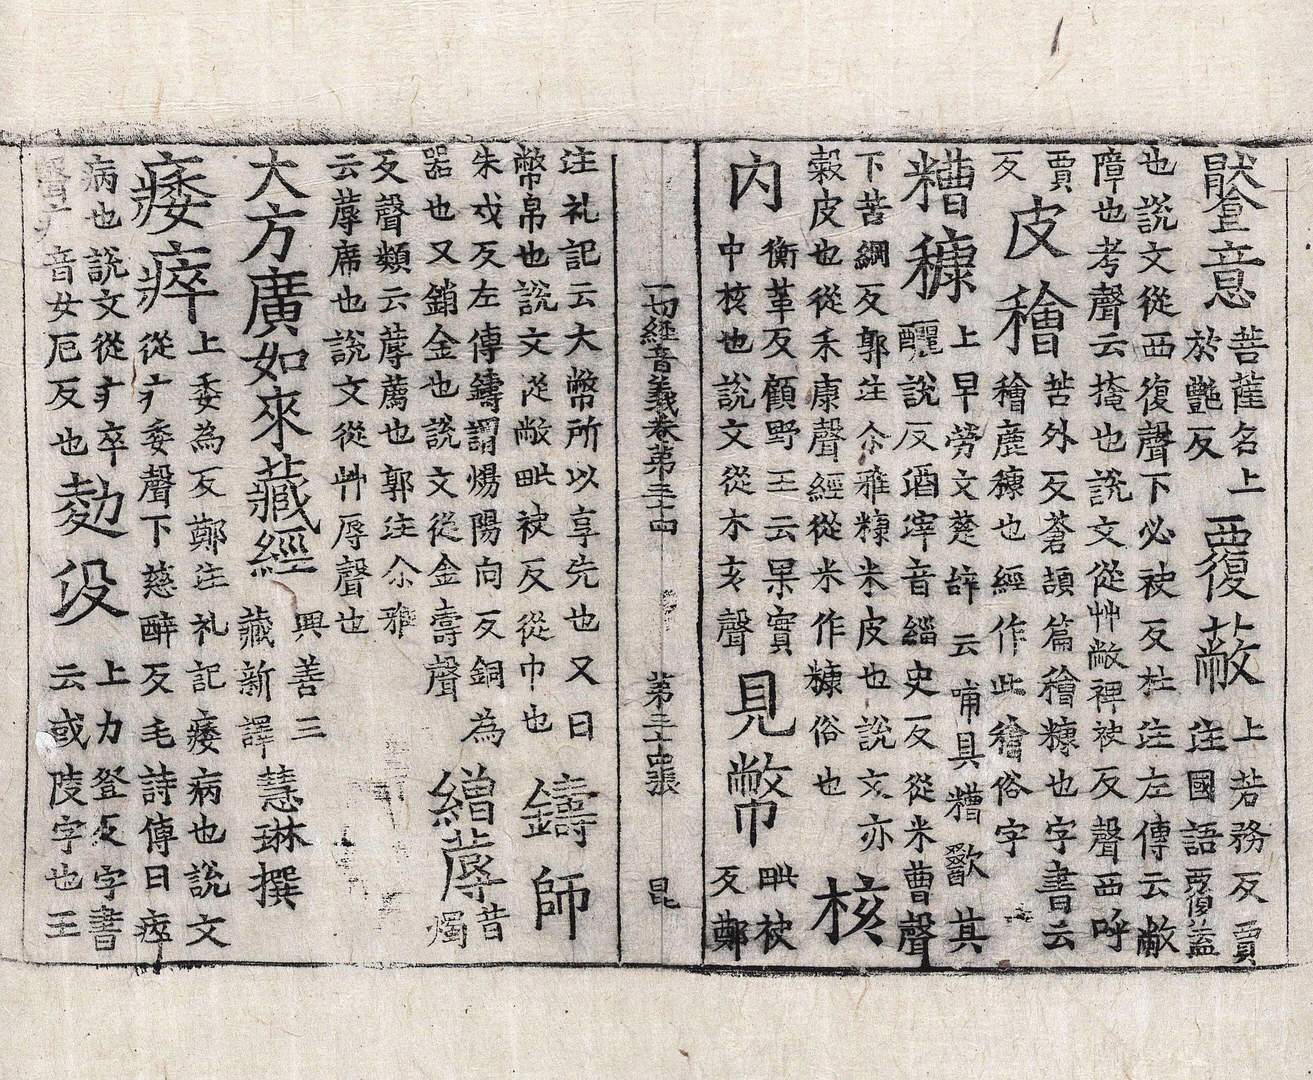 黶意
菩薩名上
於艷反
覆蔽
上芳務反賈
注國語覆蓋
也說文從西復聲下必袂反杜注左傳云蔽
障也考聲云掩也說文從艸敝裨袂反聲西呼
賈
反
皮𥢶
苦外反蒼頡篇𥢶糠也字書云
𥢶麁糠也經作此繪俗字
糟糠
上早勞文楚辞云哺具糟歠其
醨說反酒滓音緇史反從米曹聲
下苦綱反郭注尒雅糠米皮也說文亦
糓皮也從禾康聲經從米作糠俗也
核
內
衡革反顧野王云果實
中核也說文從木亥聲
見幣
毗袂
反鄭
一切經音義卷第三十四 第三十四張 昆
注礼記云大幣所以享先也又曰
幣帛也說文從敝毗袂反從巾也
鑄師
朱戍反左傳鑄謂煬陽向反銅為
器也又銷金也說文從金壽聲
繒蓐
昔
燭
反聲類云蓐薦也郭注尒雅
云蓐席也說文從艸辱聲也
大方廣如來藏經
興善三
藏新譯
慧琳撰
痿瘁
上委為反鄭注礼記痿病也說文
從疒委聲下慈醉反毛詩傳曰瘁
病也說文從疒卒
聲疒音女厄反也
上力登反字書
云或陵字也王